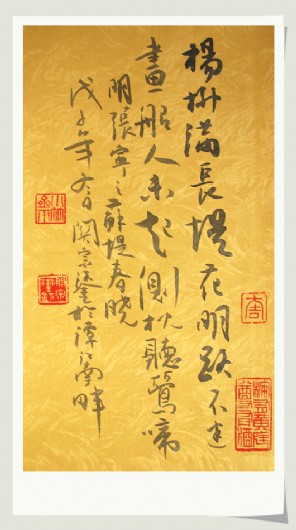 楊柳滿長堤花明路不迷
畫船人未起側枕聽鶯啼
明張寧之蘇堤春曉
戊子年冬日關宗於潭江南畔